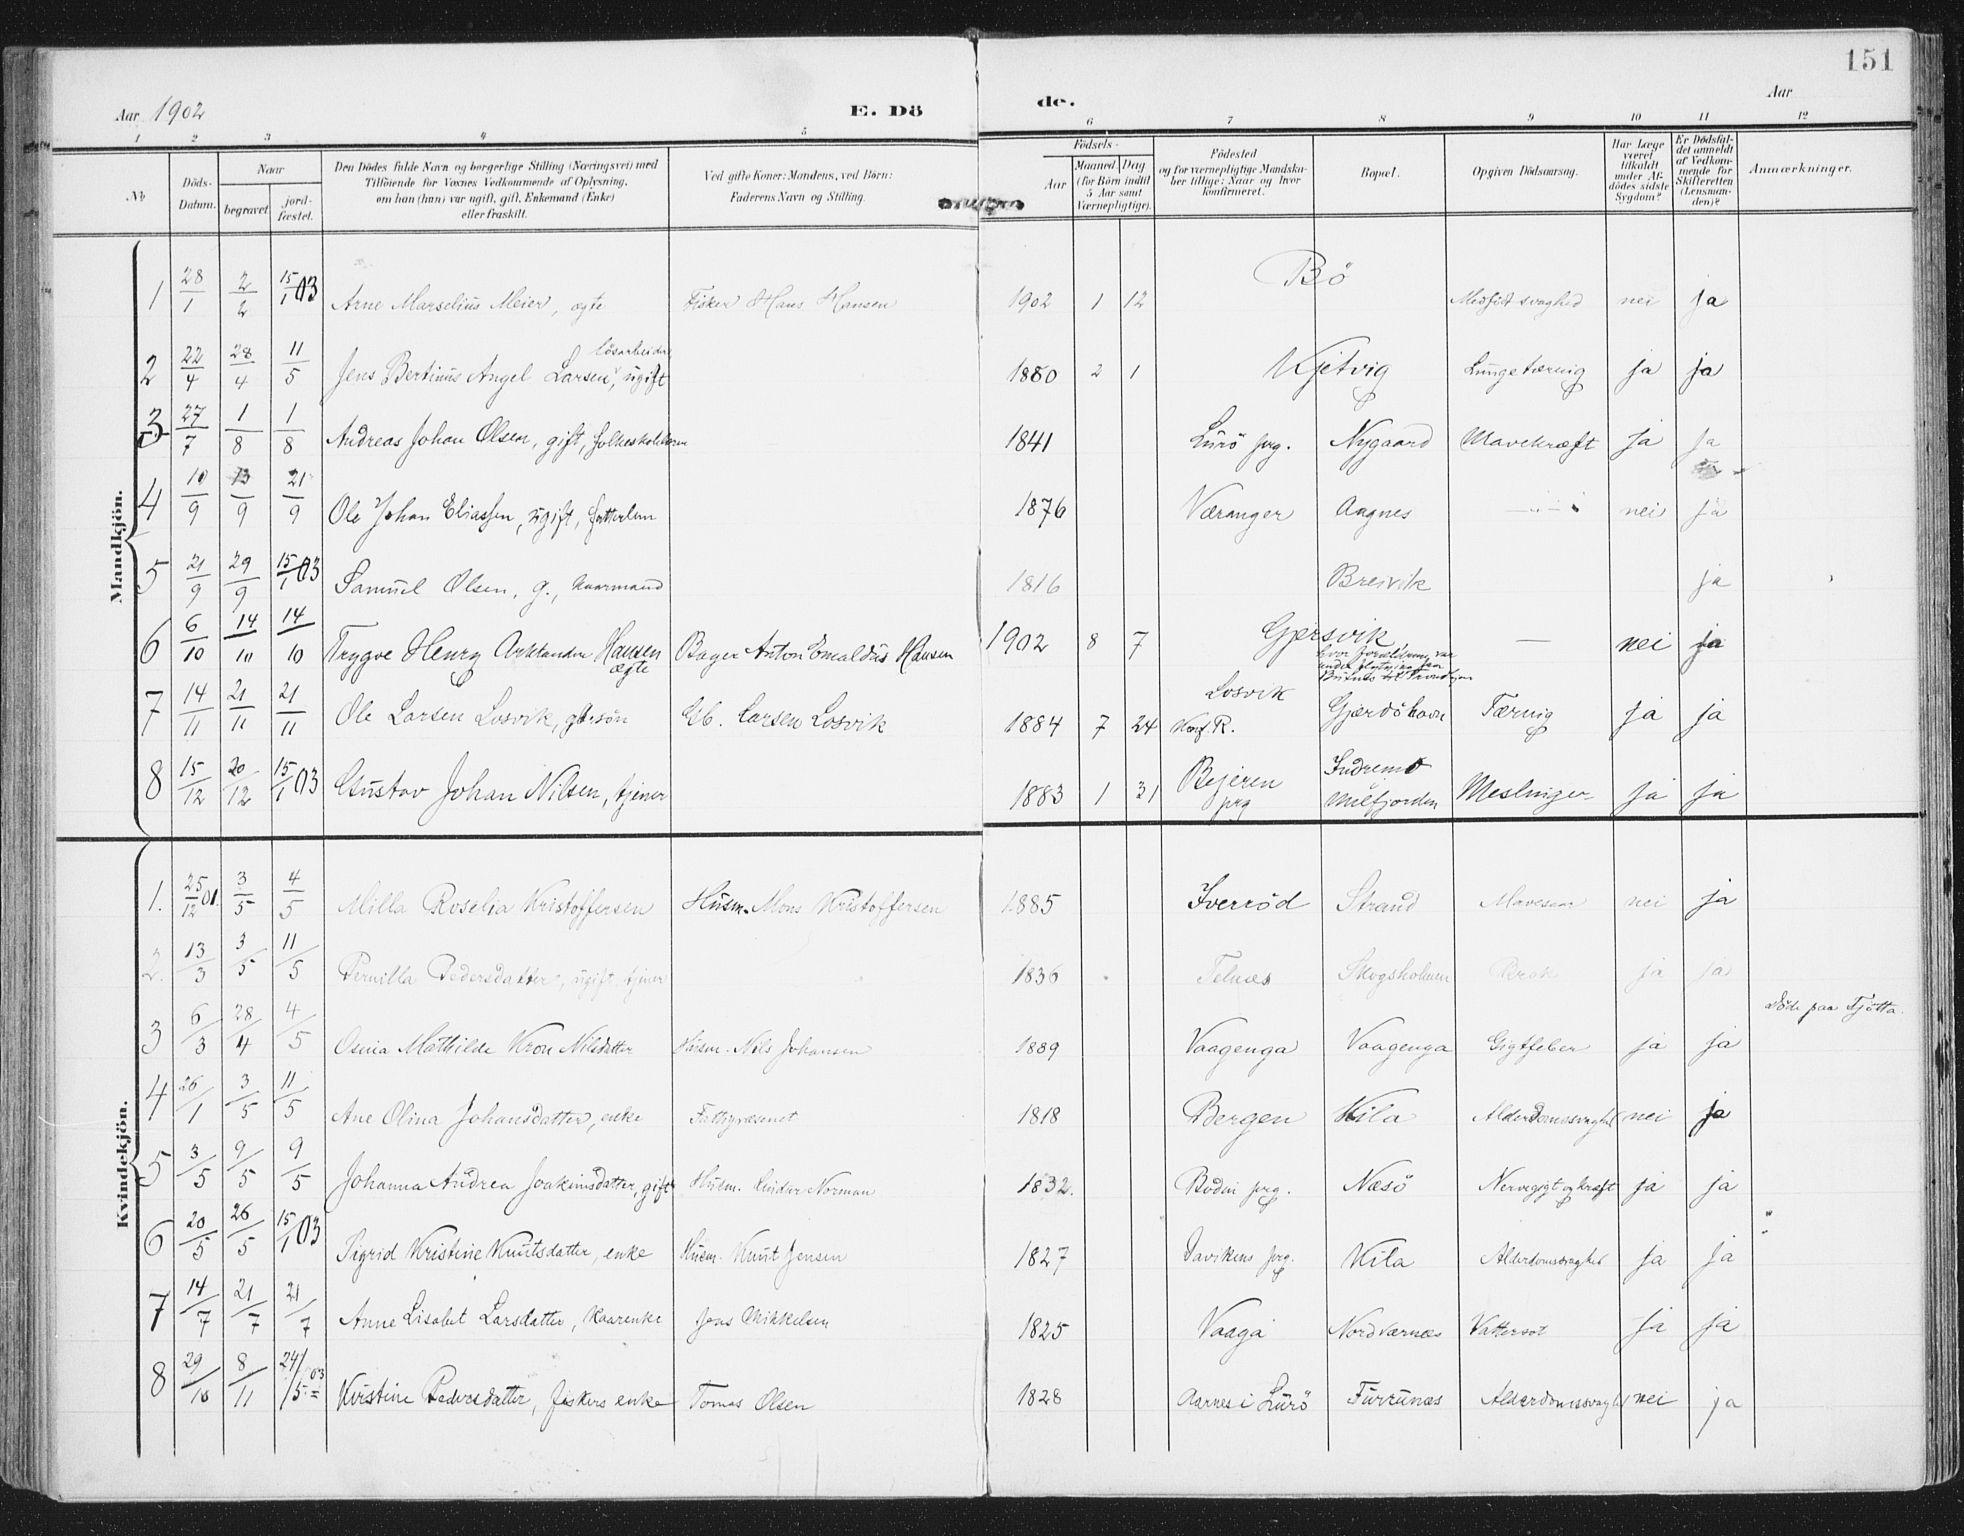 151
Aar 1902 E. Dö de. Aar
1 2 3 4 5 6 7 8 9 10 11 12
No
Döds-Datum.
Naar
begravet.
jord-fæstet.
Den Dödes fulde Navn og borgerlige Stilling (Næringsvei) med
Tilföiende for Voxnes Vedkommende af Oplysning,
om han (hun) var ugift, gift, Enkemand (Enke)
eller fraskilt.
Ved gifte Koner: Mandens, ved Börn:
Faderens Navn og Stilling.
Födsels-
Aar
Maaned Dag
(for Börn indtil
5 Aar samt
Værnepligtige).
Födested
og for værnepligtige Mandska-
ber tillige: Naar og hvor
konfirmeret.
Bopæl.
Opgiven Dödsaarsag.
Har Læge
været
tilkaldt
under Af-
dödes sidste
Sygdom?
Er Dödsfal-
det anmeldt
af Vedkom-
mende for
Skifteretten
(Lensman-
den)?
Anmærkninger.
Mandkjön.
1 28/1 2/2 15/1 03 Arne Marselius Meier, ægte Fisker Hans Hansen 1902 1 12 Bö Medfödt svaghed nei ja
lösarbeider
2 22/4 28/4 11/5 Jens Bertinus Angel Larsen, ugift 1880 2 1 Kjetvig Lungetæring ja ja
3 27/7 1/8 1/8 Andreas Johan Olsen, gift, folkeskolelærer 1841 Lurö prg. Nygaard Mavekræft ja ja
4 10/9 13/9 21/9 Ole Johan Eliassen, ugift, fattiglem 1876 Væranger Aagnes — " — nei ja
5 21/9 29/9 15/1 03 Samuel Olsen, g., kaarmand 1816 Breivik ja
6 6/10 14/10 14/10 Trygve Henry Arktander Hansen ægte Bager Anton Emaldus Hansen 1902 8 7 Gjersvik — nei ja
hvor forældrene var
under flytning fra
til Trondhjem
7 14/11 21/11 21/11 Ole Larsen Losvik, g. sön Eb. Larsen Losvik 1884 7 24 Losvik Konf. R. Gjerdöhavn Tæring ja ja
8 15/12 20/12 15/1 03 Gustav Johan Nilsen, tjener 1883 1 31 Bejeren prg Indremo i Melfjorden Meslinger ja ja
Kvindekjön.
1. 25/12 01. 3/5 4/5 Milla Roselia Kristoffersen Husm. Mons Kristoffersen 1885 Sverröd Strand Mavesaar nei ja
2. 13/3 3/5 11/5 Pernilla Pedersdatter, ugift, tjener 1836 Telnæs Skogsholmen ja ja
Döde paa Tjötta.
3 6/3 28/4 4/5 Osmia Mathilde Kron Nilsdatter Husm. Nils Johansen 1889 Vaagenga Vaagenga Gigtfeber ja ja
4 26/1 3/5 11/5 Ane Olina Johansdatter, enke Fattigvæsenet 1818 Bergen Kila Alderdomssvaghed nei ja
5 3/5 9/5 9/5 Johanna Andrea Joakimsdatter, gift Husm. Norman 1832. Bodin prg. Næsö Nervegigt og kræft ja ja
6 20/5 26/5 15/1 03 Sigrid Kristine Knutsdatter, enke Husm. Knut Jensen 1827 Davikens prg. Kila Alderdomssvaghed ja ja
7 14/7 21/7 21/7 Anne Lisabet Larsdatter, kaarenke Jens Mikkelsen 1825 Vaaga Nordværnæs Vattersot ja ja
8 29/10 8/11 24/5 03 Kirstine Pedersdatter, fiskers enke Tomas Olsen 1828 Aarnes i Lurö Furrunæs Alderdomssvaghed nei ja